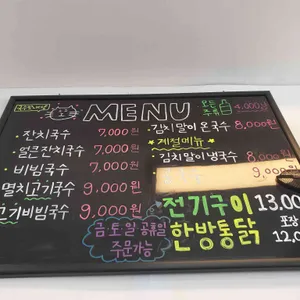 MENU
모든
주류
4,000원
잔치국수 7,000원
얼큰잔치국수 7,000원
비빔국수 7,000원
멸치고기국수 9,000원
고기비빔국수 9,000원
금토일 공휴일
주문가능
김치말이 온국수 8,000원
★계절메뉴★
김치말이냉국수 8,000원
9,000원
전기구이 13,00
한방통닭 포장
12,0